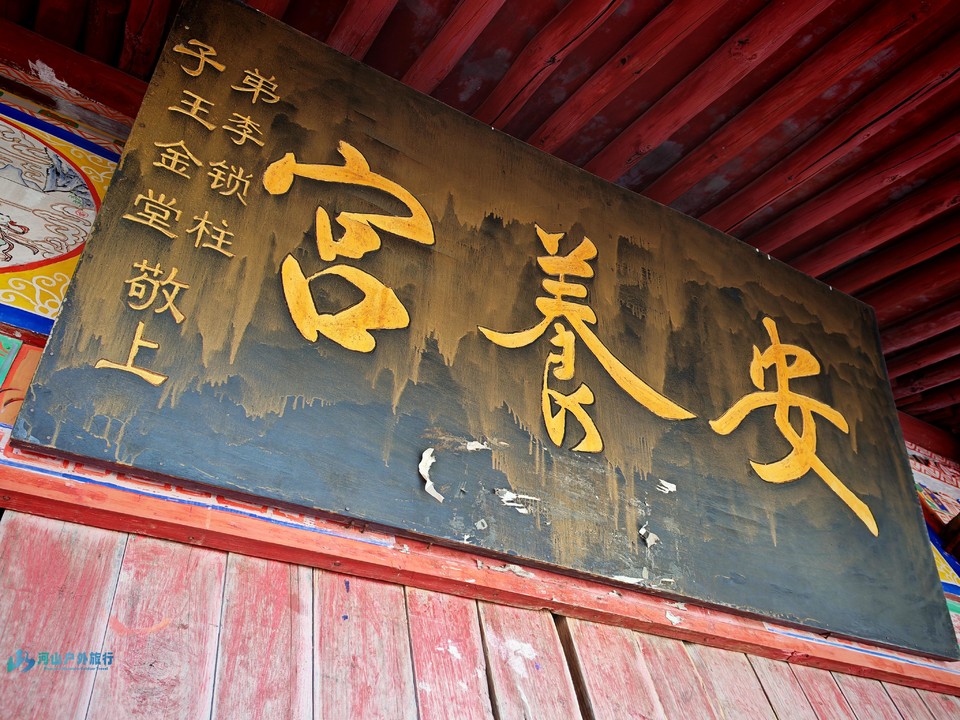 安養宮
弟李锁柱
子王金堂敬上
河山户外旅行